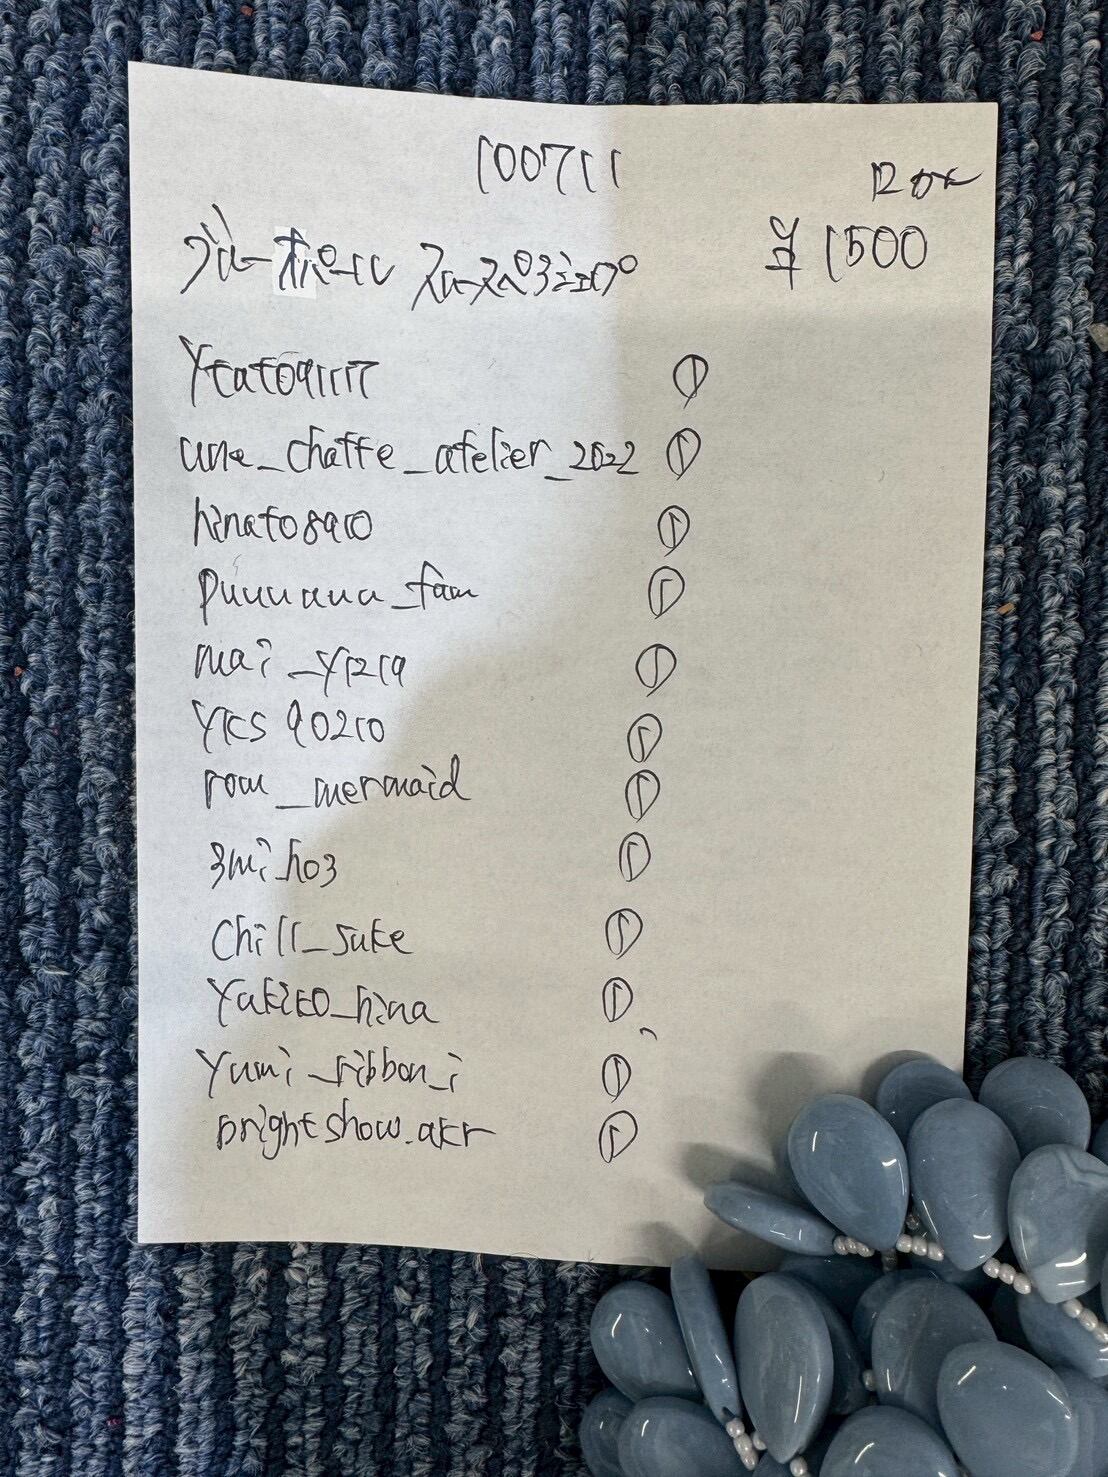 100711
¥1500
ブルーオパール
ytato91117
une_chatte_atelier_2022 ①
hinato8910 ①
puuuauua_fam ①
mai_y1219 ①
YKS90210 ①
rom_mermaid ①
3mi_ho3 ①
chill_suke ①
yukito_hina ①
yumi_ribbon_i ①
brightshow.akr ①